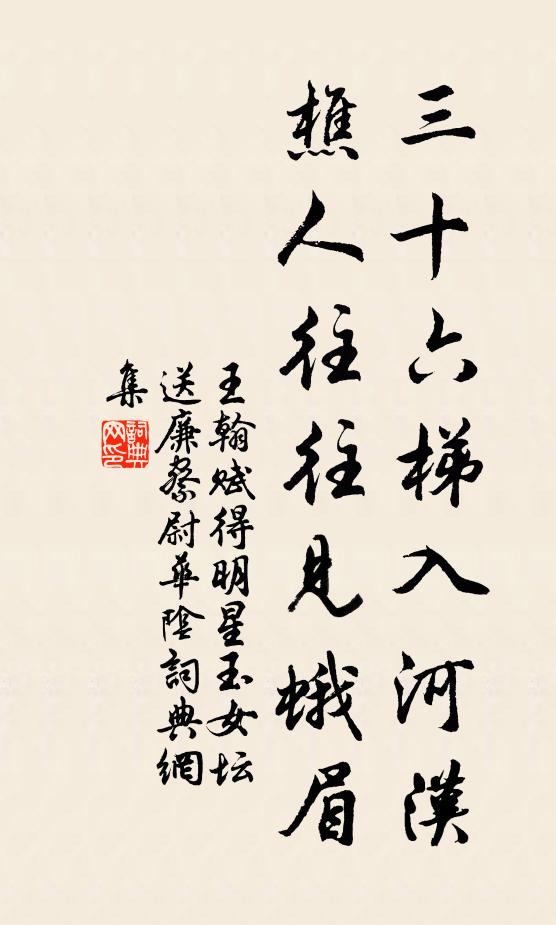 三十六梯入河漢
樵人往往見蛾眉
王翰賦得明星玉女坛
送廉察尉華陰詞典網
集
詞典
网印